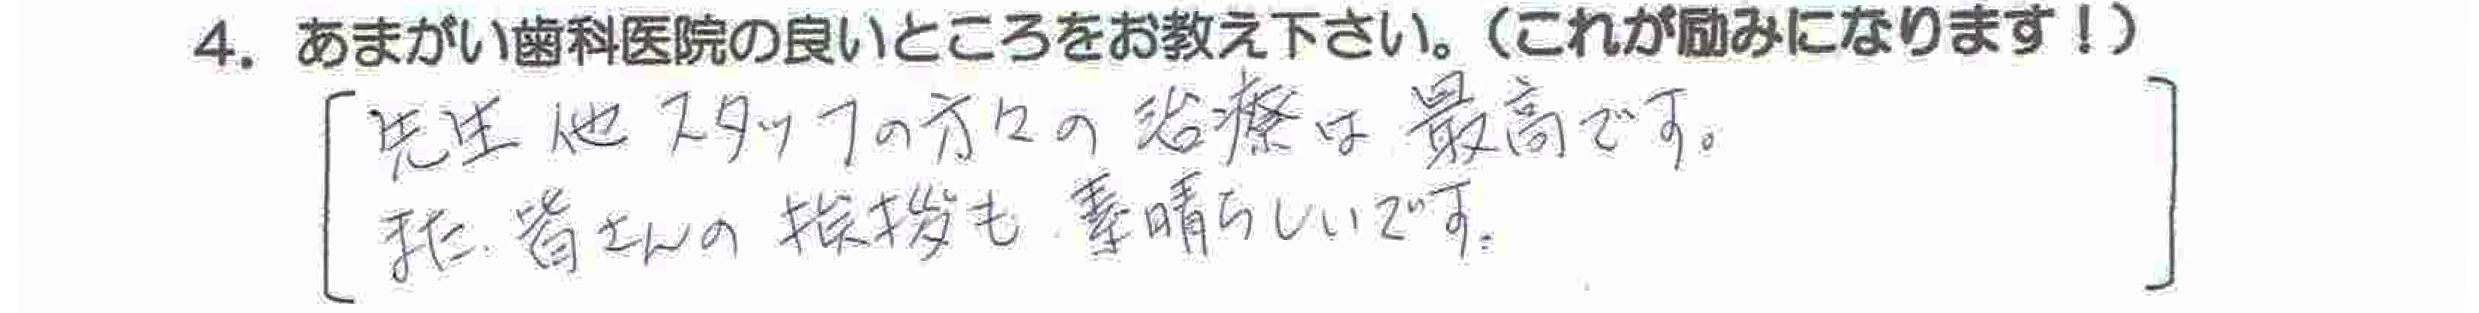 4. あまがい歯科医院の良いところをお教え下さい。(これが励みになります!)
先生他スタッフの方々の治療は最高です。
また、皆さんの挨拶も素晴らしいです。